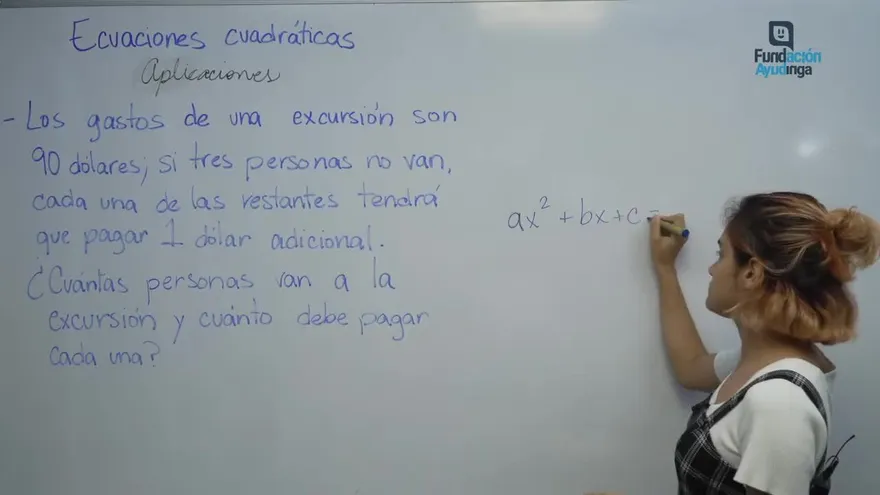 Ecuaciones cuadráticas
Aplicaciones
- Los gastos de una excursión son
90 dólares; si tres personas no van,
cada una de las restantes tendrá
que pagar 1 dólar adicional.
¿Cuántas personas van a la
excursión y cuánto debe pagar
cada una?
ax² + bx + c =
Fundación
Ayudinga